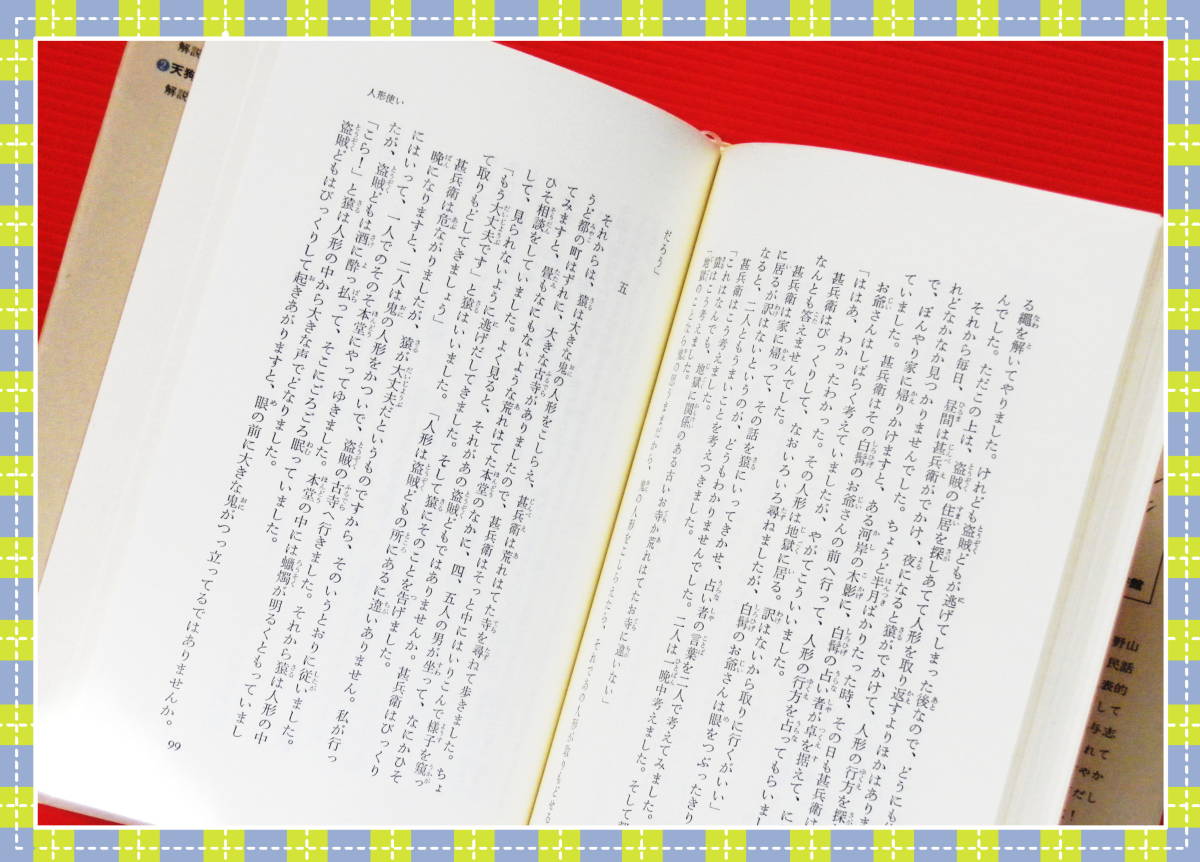 る繩を解いてやりました。けれども盗賊どもが逃げてしまった後なので、どうにも
んでした。ただこの上は、盗賊の住居を探しあてて人形を取り返すよりほかはありま
それから毎日、昼間は甚兵衛がでかけ、夜になると猿がでかけて、人形の行方を探
れどなかなか見つかりませんでした。ちょうど半月ばかりたった時、その日も甚兵衛は
で、ぼんやり家に帰りかけますと、ある河岸の木影に、白髯の占い者が卓を据えて、に
ていました。甚兵衛はその白髯のお爺さんの前へ行って、人形の行方を占ってもらいま
お爺さんはしばらく考えていましたが、やがてこういいました。
「ははあ、わかったわかった。その人形は地獄に居る。訳はないから取りに行くがいい」
甚兵衛はびっくりして、なおいろいろ尋ねましたが、白髯のお爺さんは眼をつぶったきり
なんとも答えませんでした。
甚兵衛は家に帰って、その話を猿にいってきかせ、占い者の言葉を二人で考えてみました。
に居るが訳はないというのが、どうもわかりませんでした。二人は一晩中考えました。そして
なると、二人ともうまいことを考えつきました。
甚兵衛はこう考えました。
「これはなんでも、地獄に関係のある古いお寺か荒れはてたお寺に違いない」
猿はこう考えました。
「地獄のことなら鬼の思うままだから、鬼の人形をこしらえたら、それであの人形が取りもどせる
だろう」
五
それからは、猿は大きな鬼の人形をこしらえ、甚兵衛は荒れはてた寺を尋ねて歩きました。ちょ
うど都の町はずれに、大きな古寺がありましたので、甚兵衛はそっと中にはいりこんで様子を窺っ
てみますと、畳もなにもないような荒れはてた本堂のなかに、四、五人の男が坐って、なにかひそ
ひそ相談をしていました。よく見ると、それがあの盗賊どもではありませんか。甚兵衛はびっくり
して、見られないように逃げだしてきました。そして猿にそのことを告げました。
「もう大丈夫です」と猿はいいました。「人形は盗賊どもの所にあるに違いありません。私が行っ
て取りもどしてきましょう」
甚兵衛は危ながりましたが、猿が大丈夫だというものですから、そのいうとおりに従いました。
晩になりますと、二人は鬼の人形をかついで、盗賊の古寺へ行きました。それから猿は人形の中
にはいって、一人でのそのそ本堂にやってゆきました。本堂の中には蠟燭が明るくともっていまし
たが、盗賊どもは酒に酔っ払って、そこにごろごろ眠っていました。
「こら！」と猿は人形の中から大きな声でどなりました。
盗賊どもはびっくりして起きあがりますと、眼の前に大きな鬼がつっ立ってるではありませんか。
人形使い
99
解説
❷天狗
解説
野山
民話
表的
して
与志
れて
やか
だし
！